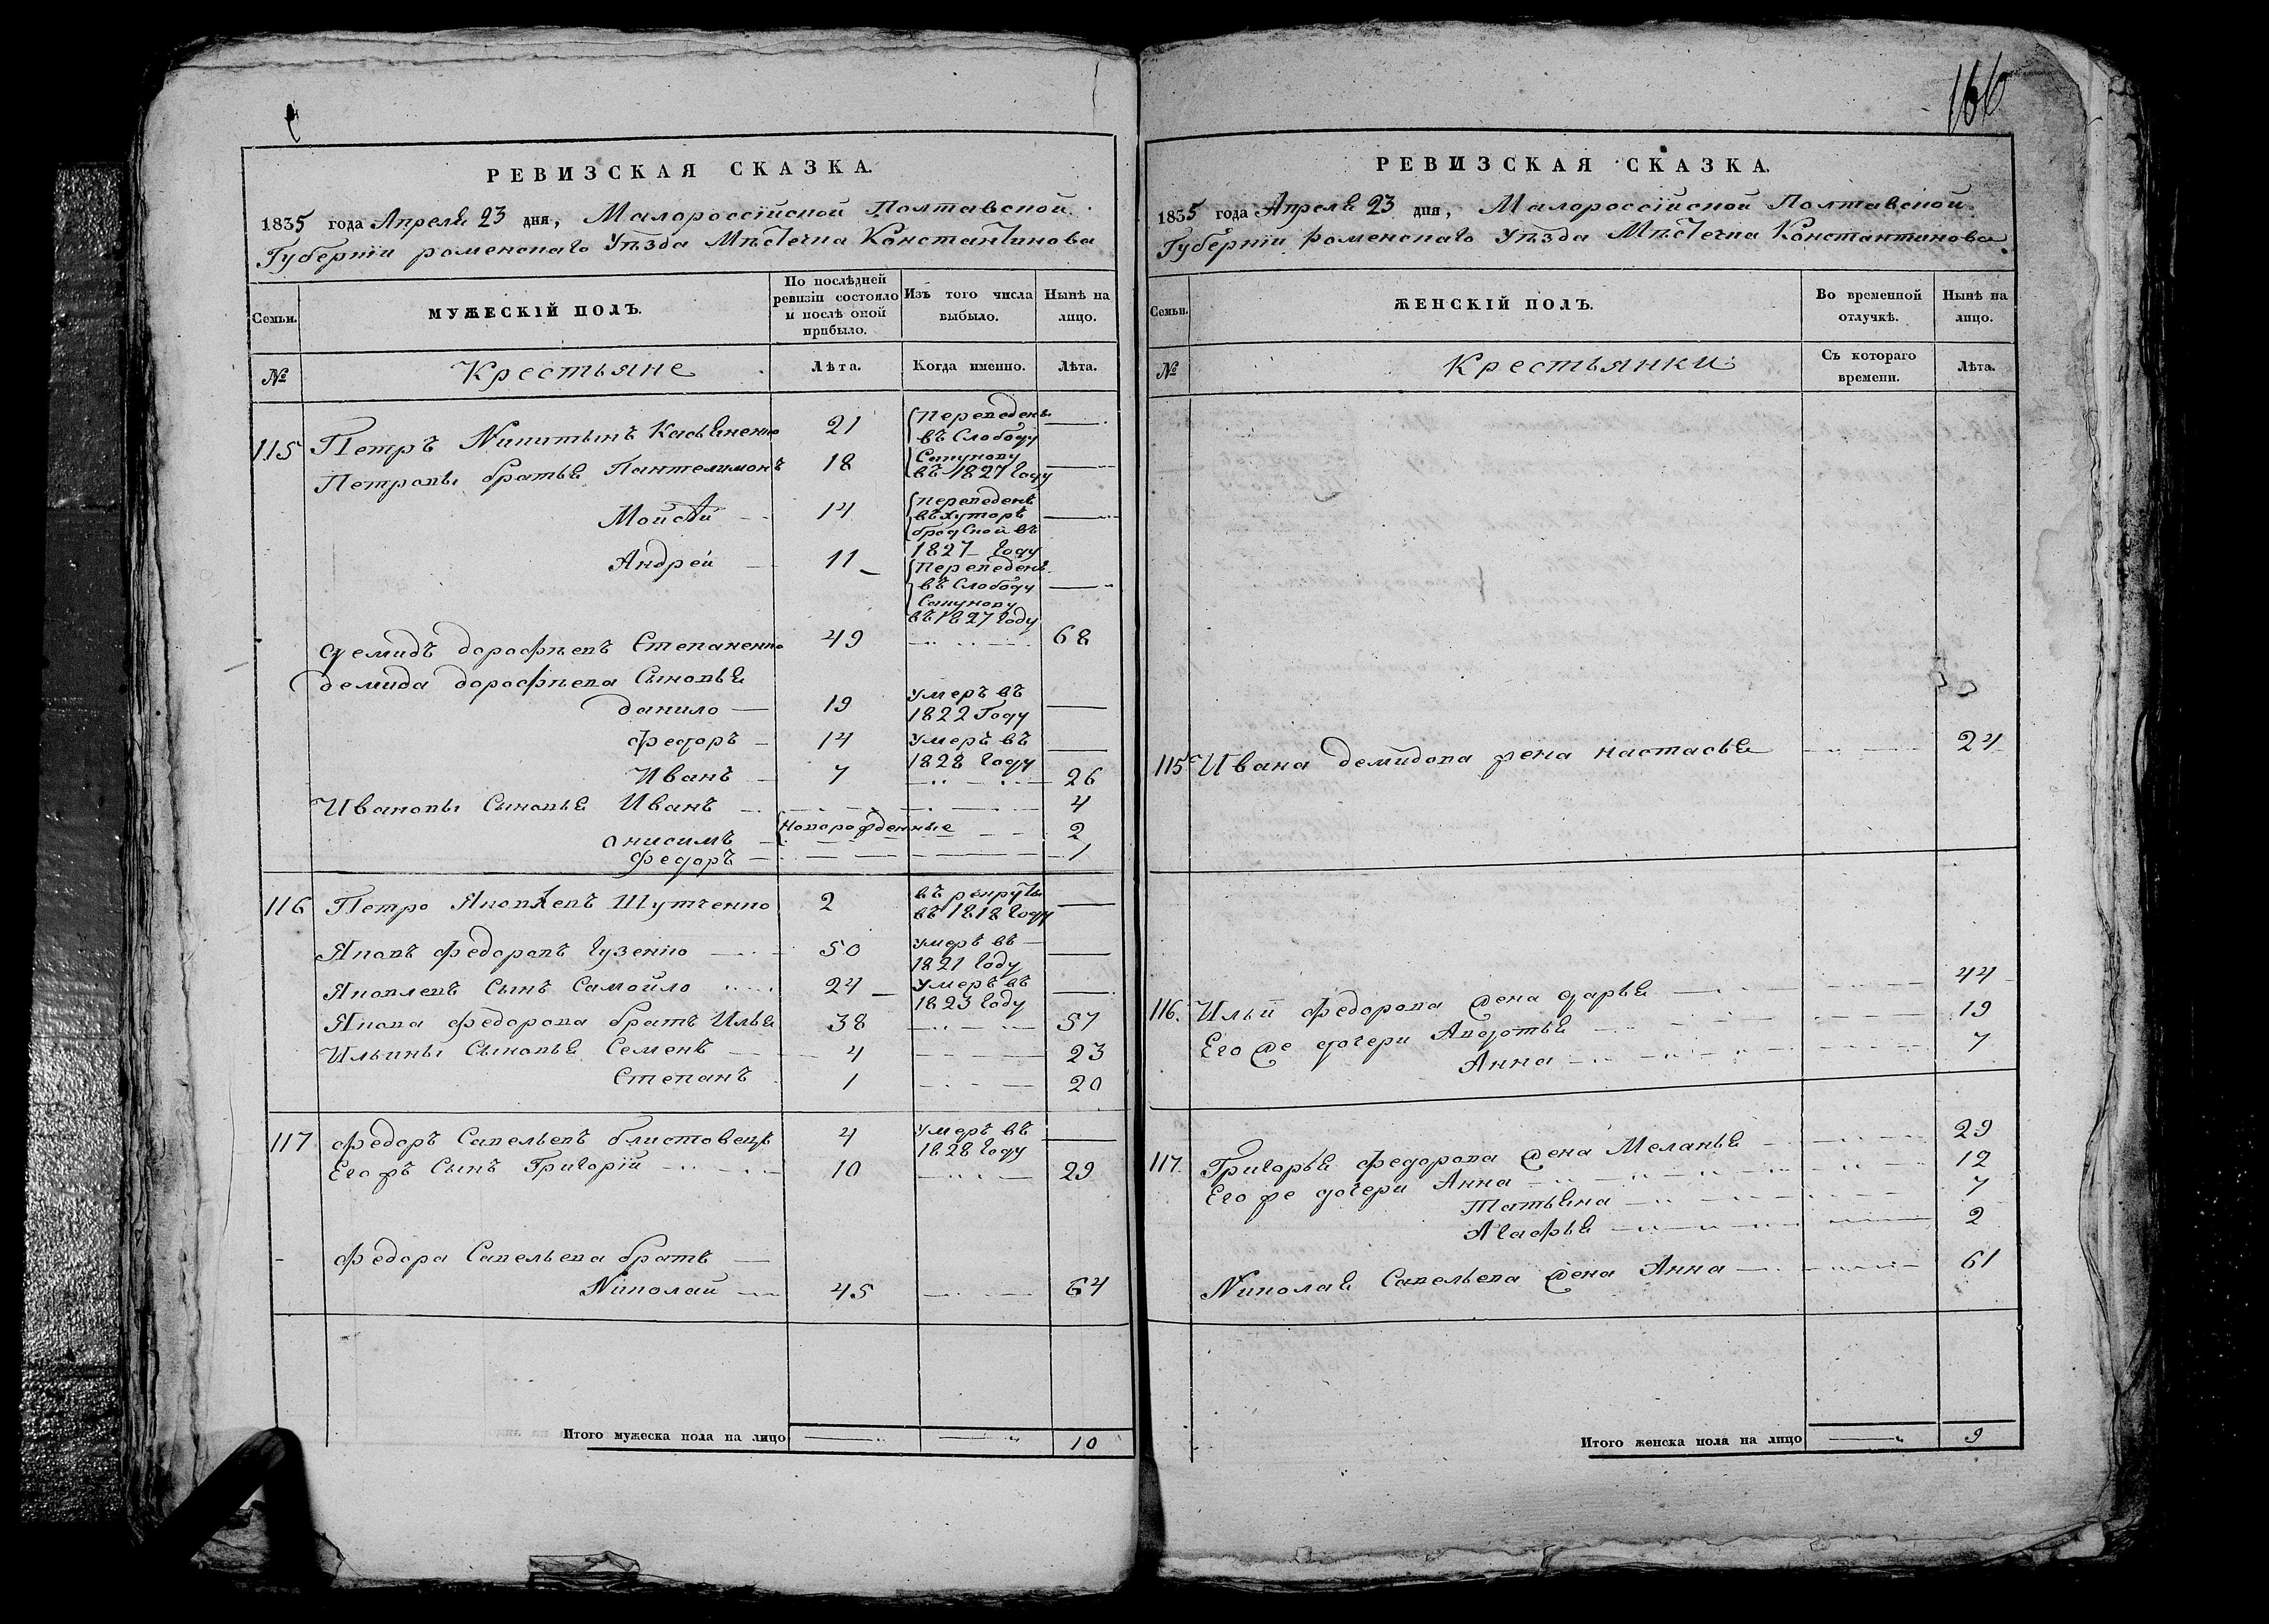 РЕВИЗСКАЯ СКАЗКА.
1835 года Апреля 23 дня, Малороссійской Полтавской
Губерніи роменскаго Уѣзда Мѣстечка Константинова
Семьи.
МУЖЕСКІЙ ПОЛЪ.
По послѣдней ревизіи состояло и послѣ оной прибыло.
Изъ того числа выбыло.
Нынѣ на лицо.
№
Крестьяне
Лѣта.
Когда именно.
Лѣта.
115 Петръ Никитинъ Касьяненко 21 переведенъ въ Слободу
Петровы братья Пантелимонъ 18 Сапунову въ 1827 году
Мойсѣй 14 переведенъ въ хуторъ бродской въ 1827 году
Андрей 11 переведенъ въ Слободу Сапунову въ 1827 году
демидъ дорофѣевъ Степаненко 49 68
демида дорофѣева Сыновья
данило 19 умеръ въ 1822 Году
федоръ 14 умеръ въ 1828 году
Иванъ 7 26
Ивановы Сыновья Иванъ 4
онисимъ новорожденные 2
федоръ 1
116 Петро Яковлевъ Шутченко 2 въ рекруты въ 1818 году
Яковъ федоровъ гузенко 50 умеръ въ 1821 году
Яковлевъ Сынъ Самойло 24 умеръ въ 1823 году
Якова федорова братъ Илья 38 57
Ильины Сыновья Семенъ 4 23
Степанъ 1 20
117 федоръ Савельевъ блистовецъ 4 умеръ въ 1828 году
Его жъ Сынъ Григорій 10 29
федора Савельева братъ
Николай 45 64
Итого мужеска пола на лицо 10
166
РЕВИЗСКАЯ СКАЗКА.
1835 года Апреля 23 дня, Малороссійской Полтавской
Губерніи роменскаго Уѣзда Мѣстечка Константинова
Семьи.
ЖЕНСКІЙ ПОЛЪ.
Во временной отлучкѣ.
Нынѣ на лицо.
№
Крестьянки
Съ котораго времени.
Лѣта.
115 Ивана демидова жена настасья 24
116. Ильи федорова жена дарья 44
Его же дочери Авдотья 19
Анна 7
117. Григорья федорова жена Меланья 29
Его же дочери Анна 12
Татьяна 7
Агафья 2
Николая Савельева жена Анна 61
Итого женска пола на лицо 9